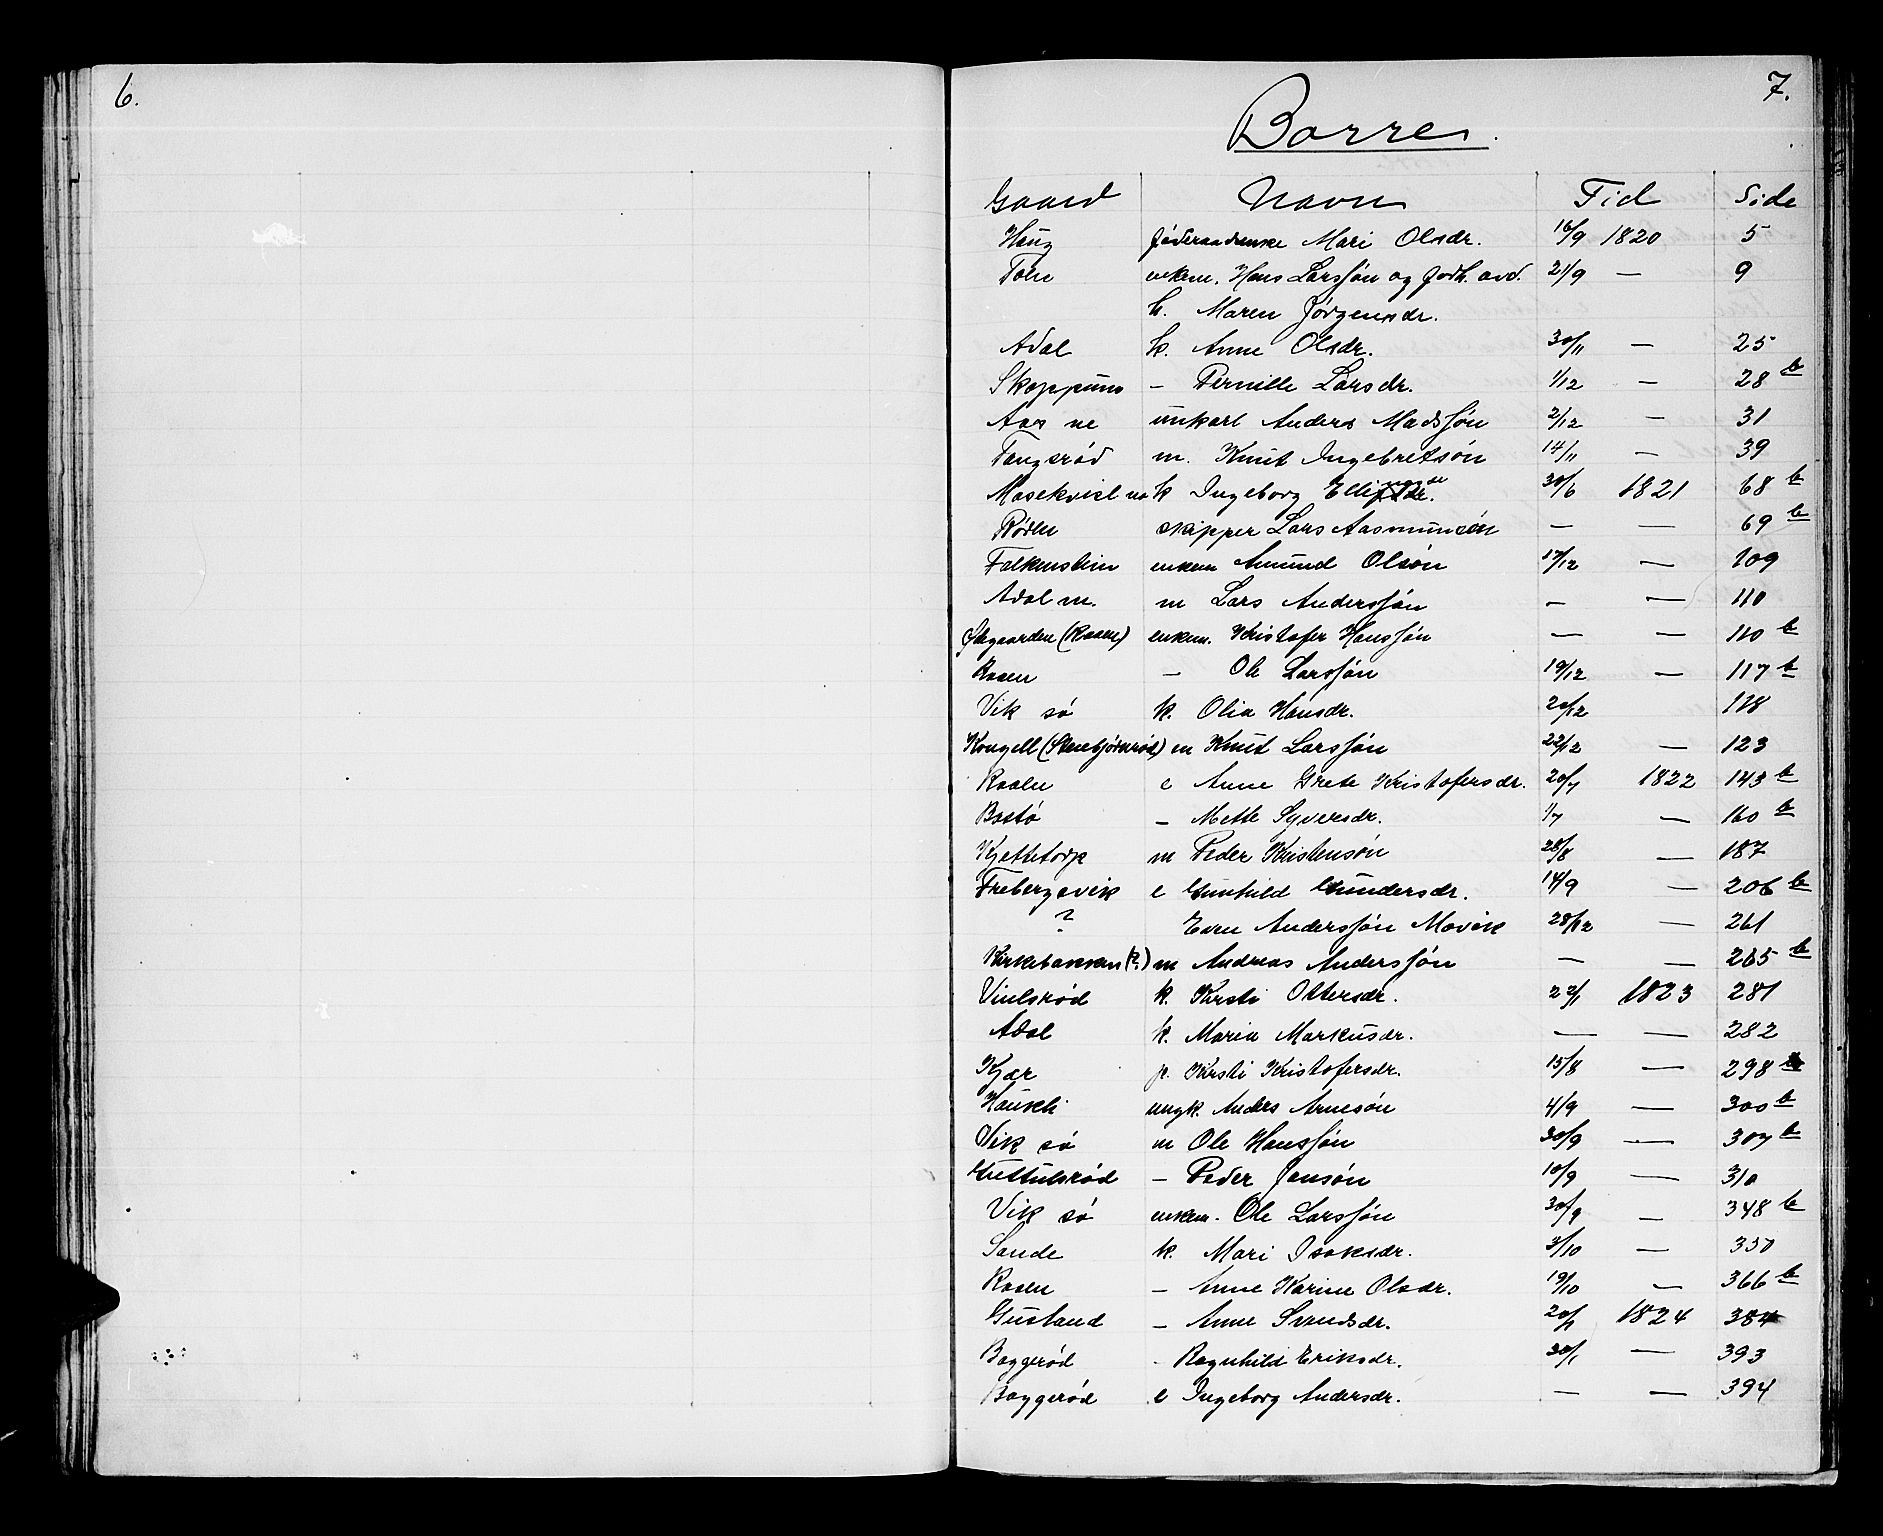 6.
7.
Borre.
Gaard Navn Tid Side
Haug føderaadsenke Mari Olsdr. 16/9 1820 5
Toln enkem. Hans Larssøn og forh. avd. 21/9 — 9
h. Maren Jørgensdr.
Adal k. Anne Olsdr. 30/11 — 25
Skoppum - Pernille Larsdr. 1/12 — 28 b
Aas ne unkarl Anders Madssøn 2/12 — 31
Tangsrød m. Knut Ingebretsøn 14/11 — 39
Mosekvisl no k Ingeborg 30/6 1821 68 b
Røden skipper Lars Aasmunsøn — — 69 b
Falkenstein enkem Amund Olsøn 17/12 — 109
Adal m. m Lars Anderssøn — — 110
Øegaarden (Raaen) enkem. Kristofer Hanssøn — — 110 b
Raaen — Ole Larssøn 19/12 — 117 b
Vik sø k. Olia Hansdr. 20/12 118
Kongell (Stenbjørnrød) m Knut Larssøn 22/12 — 123
Raaen e Anne Grete Kristofersdr. 20/7 1822 143 b
Bastø - Mette Syversdr. 1/7 — 160 b
Kjettetorp m Peder Kristensøn 28/8 — 187
Frebergsvik e Gunhild Gundersdr. 14/9 — 206 b
? Even Anderssøn Movik 28/12 — 261
Kirkebakken (?) m Andreas Anderssøn — — 265 b
Viulsrød k. Kirsti Ottersdr. 22/1 1823 281
Adal k. Maria Markusdr. — — 282
Kjær p. Kirsti Kristofersdr. 15/8 — 298
Haukli ungk. Anders Arnesøn 4/9 — 300 b
Vik sø m Ole Hanssøn 30/9 — 307 b
Guttulsrød - Peder Jonsøn 10/9 — 310
Vik sø enkem. Ole Larssøn 30/9 — 348 b
Sande k. Mari Isaksdr. 3/10 — 350
Raaen — Anne Karine Olsdr. 19/10 — 366 b
Gusland — Anne Svendsdr. 20/1 1824 384
Baggerød - Ragnhild Eriksdr. 30/1 — 393
Baggerød e Ingeborg Andersdr. — — 394